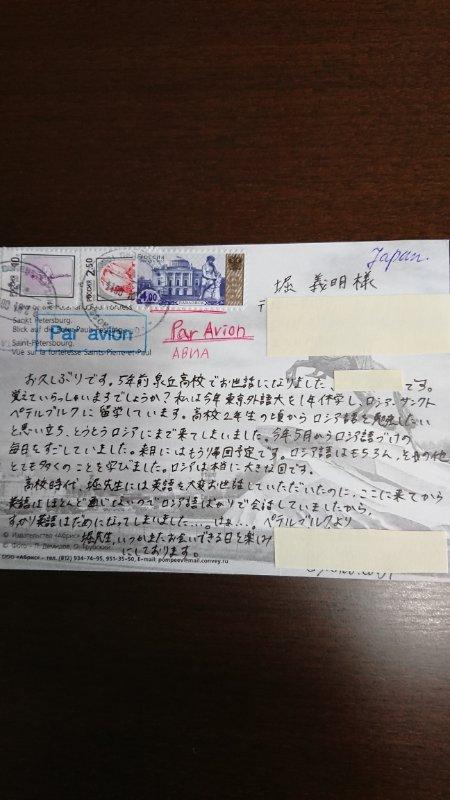 РОССИЯ 10
РОССИЯ 2.50
РОССИЯ
4.00
Japan.
堀 義明様
〒
Sankt Petersburg.
Blick auf die Peter-Pauls-Festung
Saint-Petersbourg.
Vue sur la forteresse Saints-Pierre-et-Paul
Par avion
Par Avion
АВИА
お久しぶりです。5年前泉丘高校でお世話になりました、です。
覚えていらっしゃいますでしょうか？私は今年東京外語大を1年休学し、ロシア、サンクト
ペテルブルクに留学しています。高校2年生の頃からロシア語を勉強したい
と思い立ち、とうとうロシアにまで来てしまいました。今年5月からロシア語づけの
毎日をすごしていました。来月にはもう帰国予定です。ロシア語はもちろん、その他
とても多くのことを学びました。ロシアは本当に大きな国です。
高校時代、堀先生には英語を大変お世話していただいたのに、ここに来てから
英語はほとんど通じないのでロシア語ばかりで会話していましたから、
すっかり英語はだめになってしまいました…。はぁ…。ペテルブルクより
堀先生、いつかまたお会いできる日を楽しみ
にしております。
© Издательство «Абрис»
© Фото -
ООО «Абрис» - тел. (812) 934-74-95, 951-35-50, E-mail: pompeev@mail.convey.ru